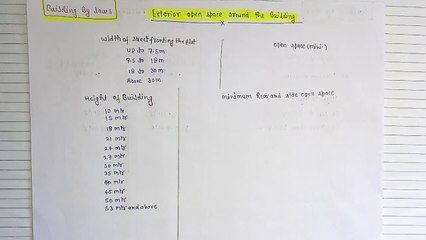 Building By laws
Exterior open space around the Building
width of street fronting the plot
open space (mini.)
up to 7.5m
7.5 to 18m
18 to 30m
Above 30m
Height of Building
minimum Rear and side open space
10 mtr
15 mtr
18 mtr
21 mtr
24 mtr
27 mtr
30 mtr
35 mtr
40 mtr
45 mtr
50 mtr
53 mtr and above